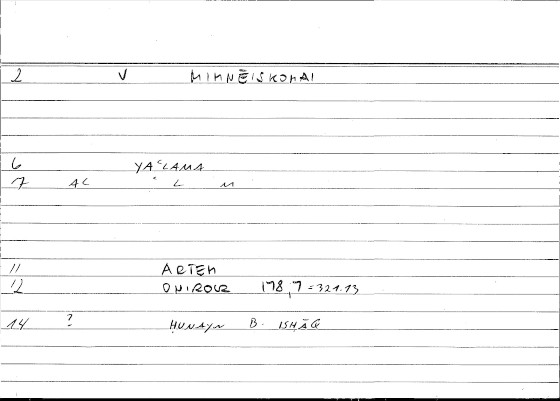 2 V MIMNĒISKOMAI
6 YAʿLAMA
7 AC ʿ L M
11 ARTEM
12 ONIROCR 178,7 = 321.13
14 ? ḤUNAYN B. ISḤĀQ